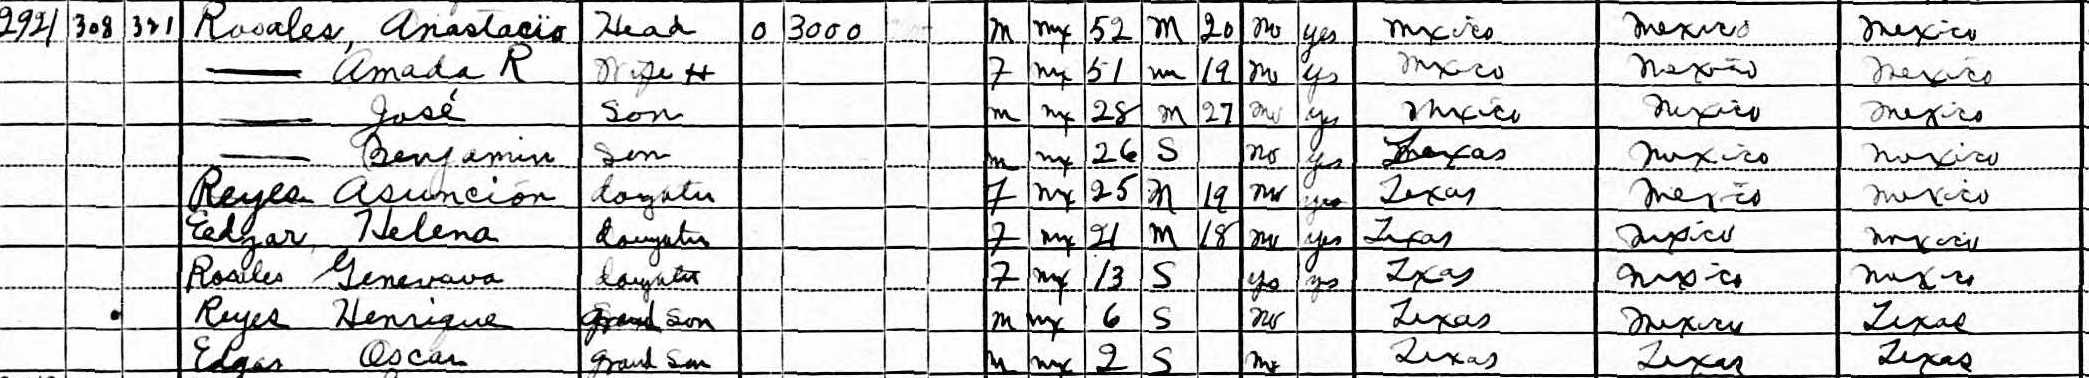 2921 308 321 Rosales, Anastacio Head O 3000 M Mx 52 M 20 No yes Mexico Mexico Mexico
— Amada R Wife H F Mx 51 M 19 No yes Mexico Mexico Mexico
— José Son M Mx 28 M 27 No yes Mexico Mexico Mexico
— Benjamin Son M Mx 26 S No yes Texas Mexico Mexico
Reyes Asunción daughter F Mx 25 M 19 No yes Texas Mexico Mexico
Edgar, Helena daughter F Mx 21 M 18 No yes Texas Mexico Mexico
Rosales Genevava daughter F Mx 13 S yes yes Texas Mexico Mexico
Reyes Henrique Grand Son M Mx 6 S No Texas Mexico Texas
Edgar Oscar Grand Son M Mx 2 S No Texas Texas Texas